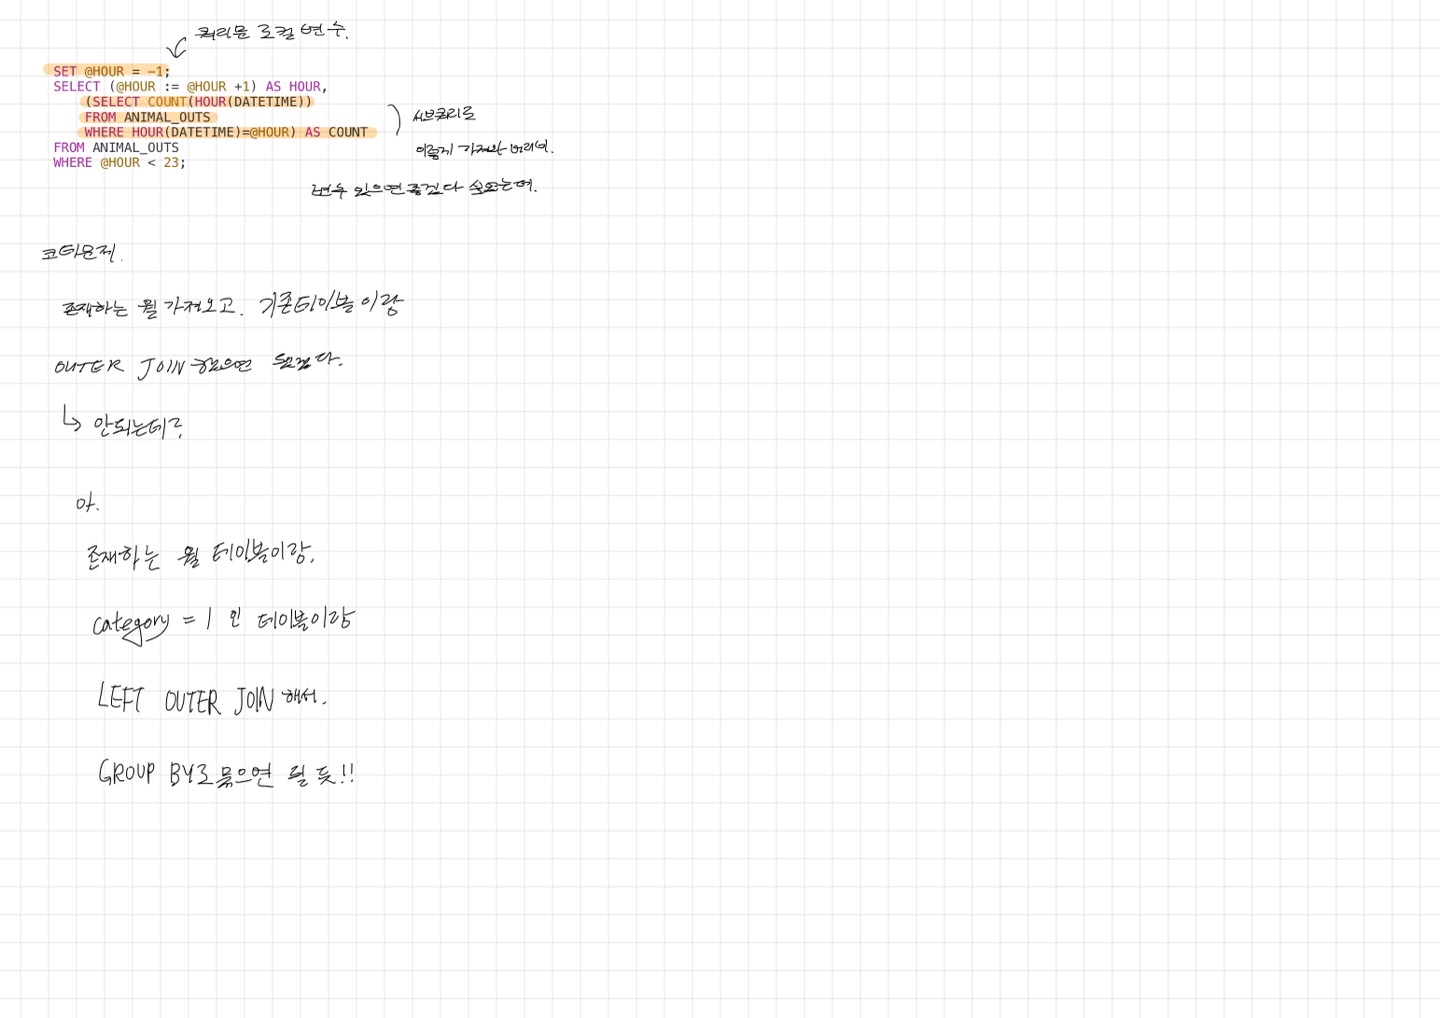 쿼리문 로컬 변수.
SET @HOUR = -1;
SELECT (@HOUR := @HOUR +1) AS HOUR,
(SELECT COUNT(HOUR(DATETIME))
FROM ANIMAL_OUTS
WHERE HOUR(DATETIME)=@HOUR) AS COUNT
서브쿼리로
이렇게 가져와 버리네.
FROM ANIMAL_OUTS
WHERE @HOUR < 23;
변수 있으면 좋겠다 싶었는데.
코테문제.
존재하는 월 가져오고. 기존테이블이랑
OUTER JOIN 했으면 됐겠다.
↳ 안되는데?
아.
존재하는 월 테이블이랑.
category = 1 인 테이블이랑
LEFT OUTER JOIN 해서.
GROUP BY로 묶으면 될 듯!!